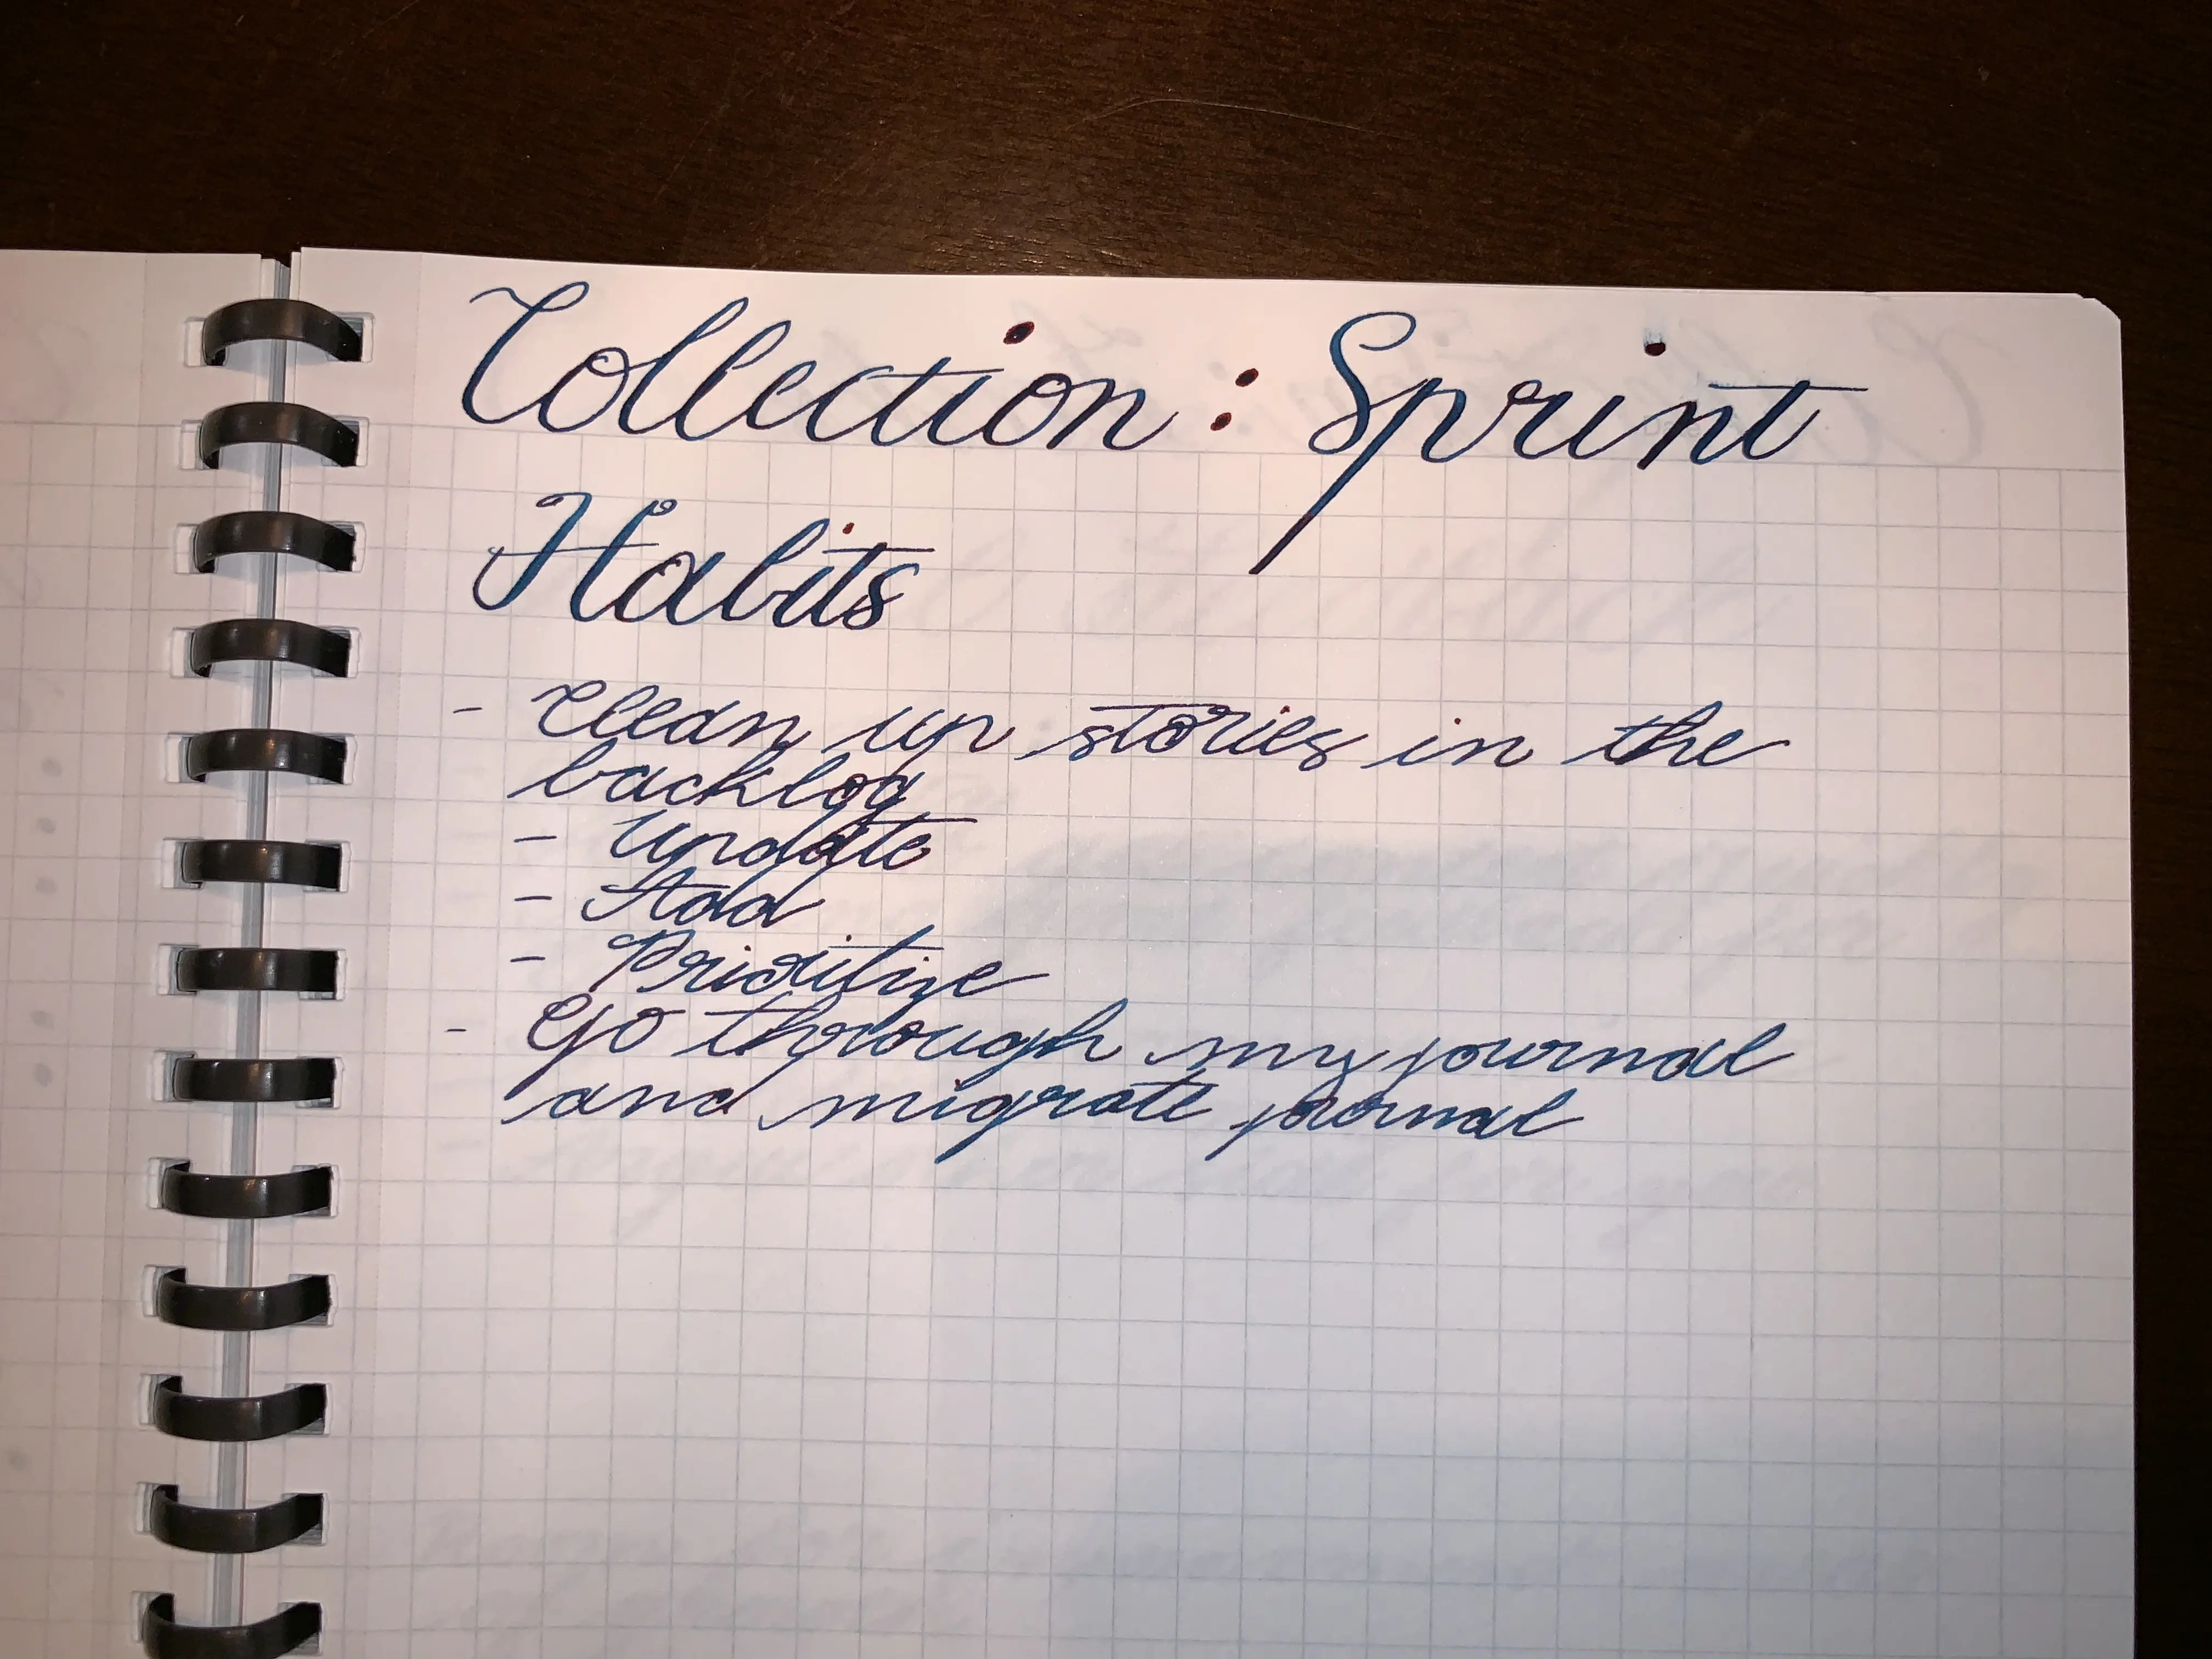 Collection: Sprint
Habits
- Clean up stories in the
backlog
- Update
- Add
- Prioritize
- Go through my journal
and migrate journal